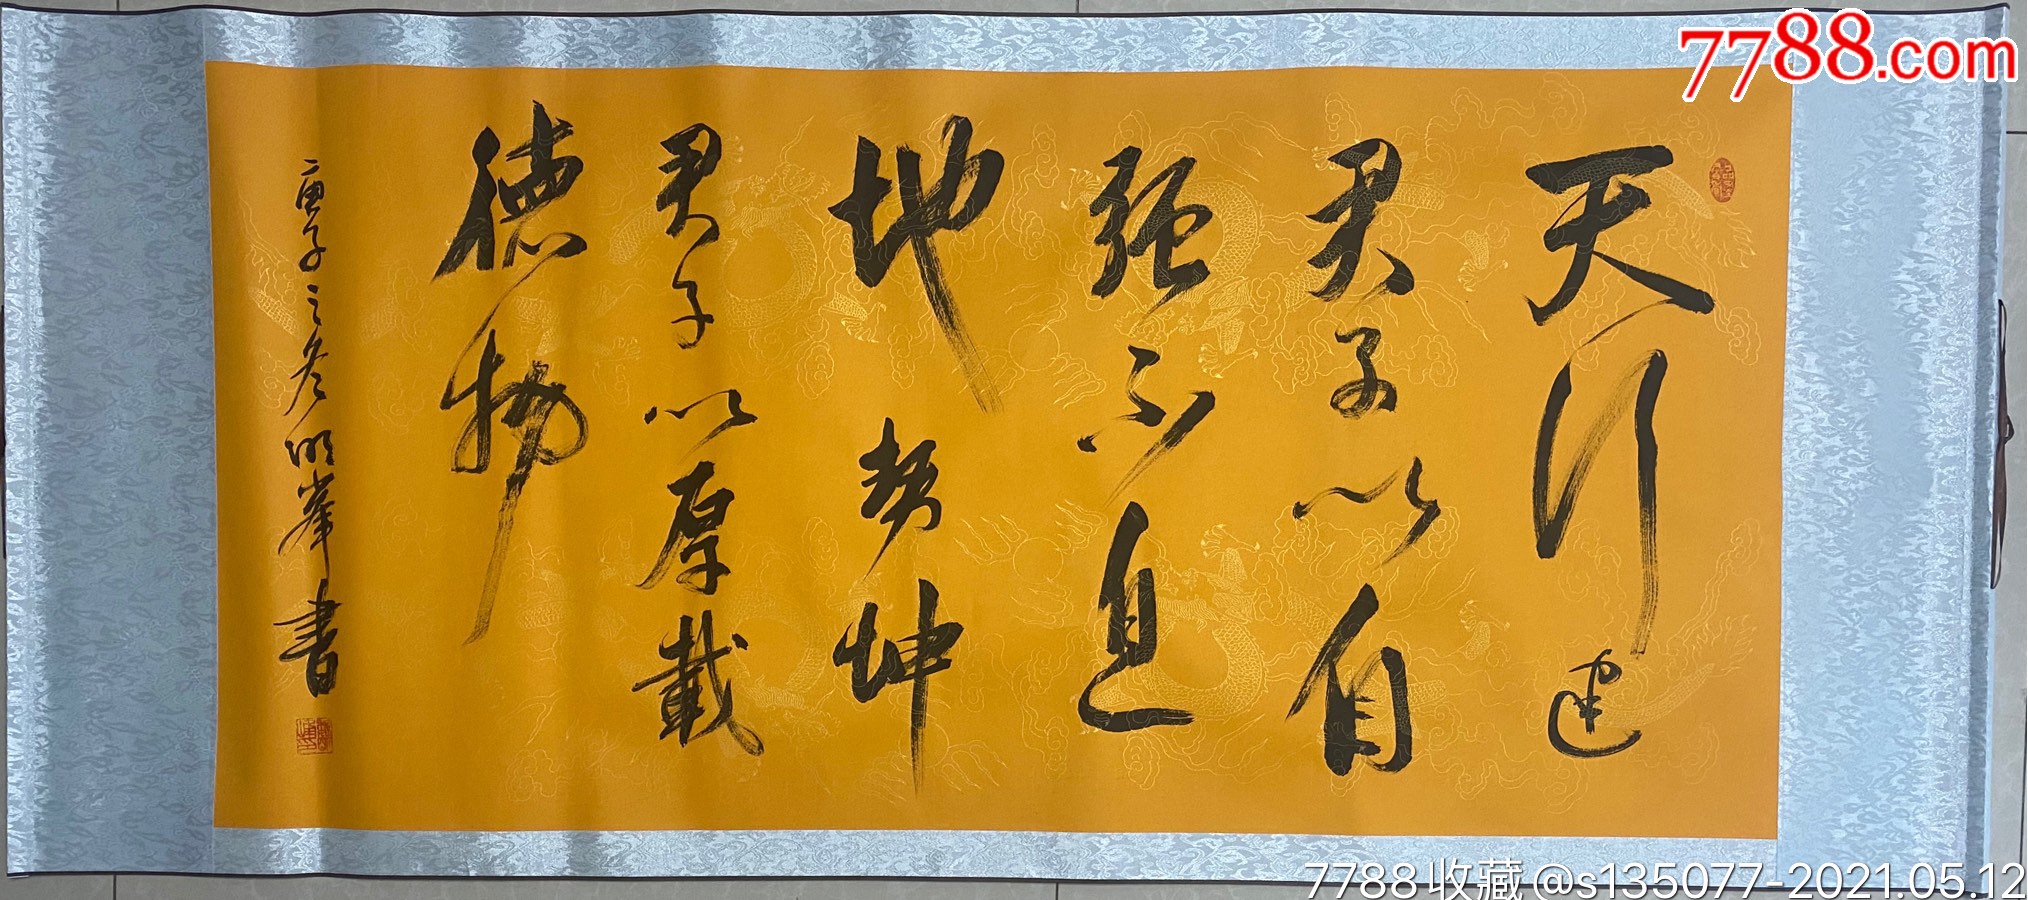 7788.com
天行建
君子以自
强不息
地势坤
君子以厚載
德物
庚子之冬明峯書
7788收藏@s135077-2021.05.12